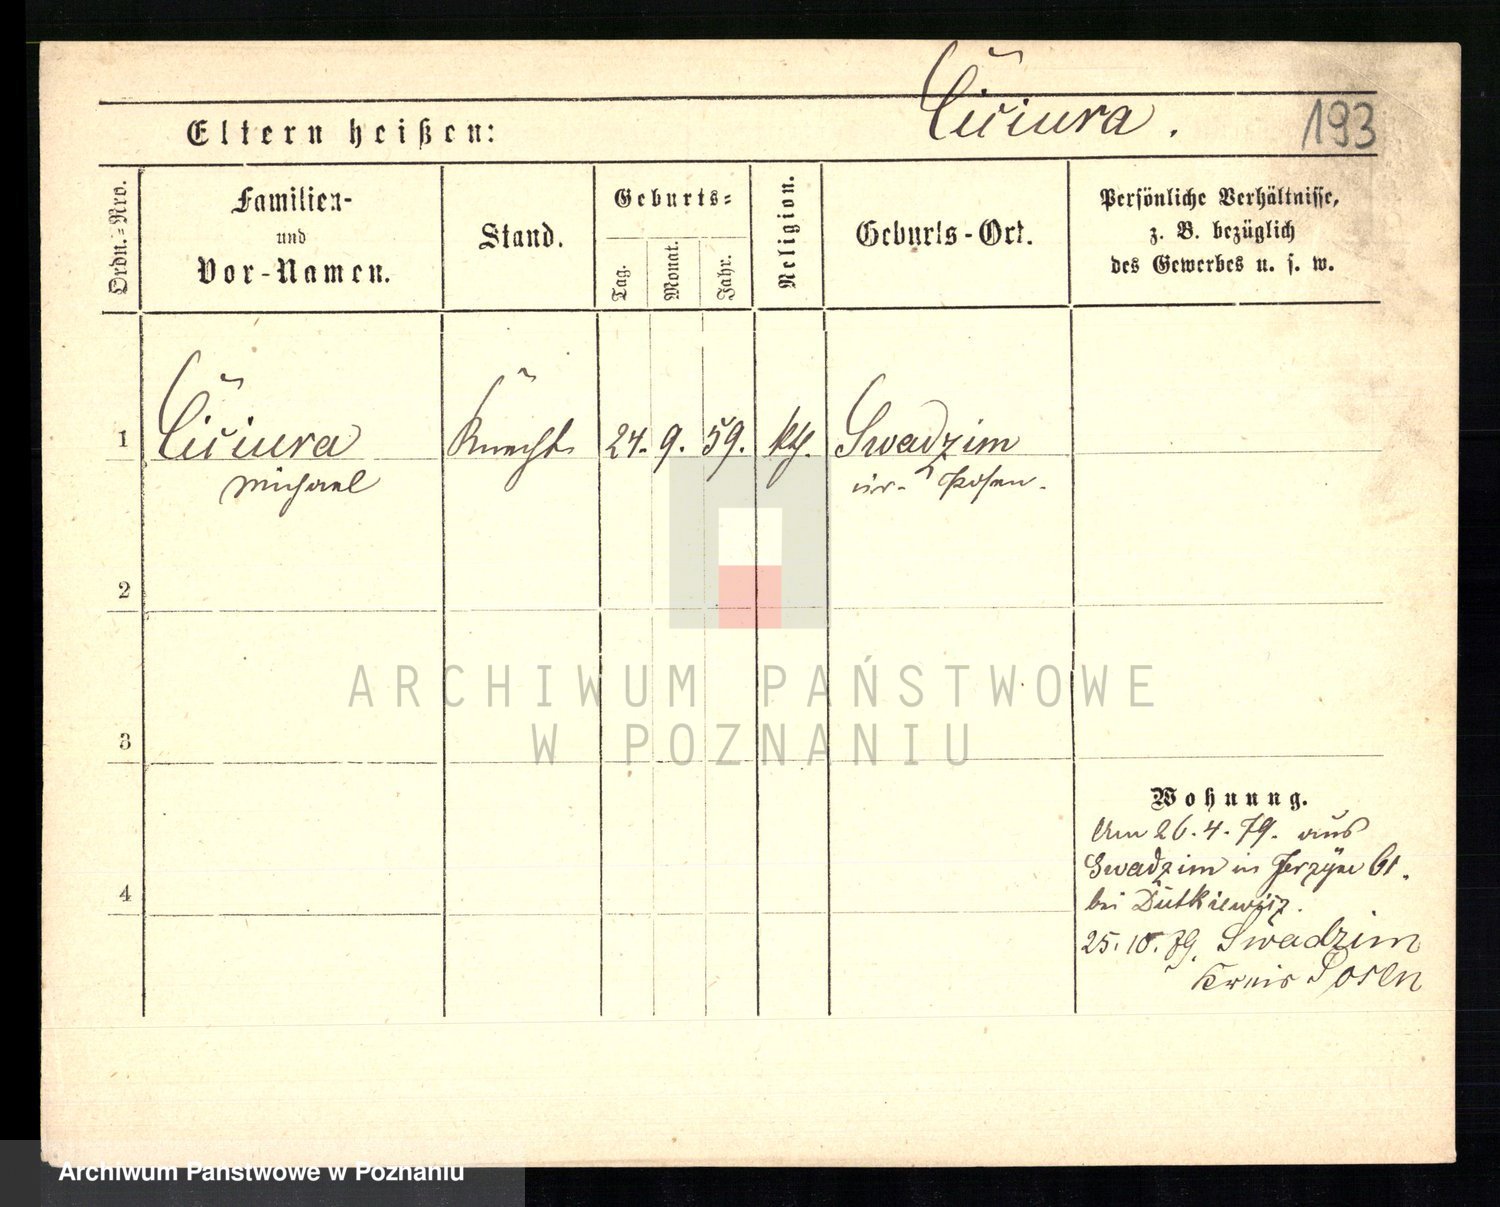 Ciciura.
193
Eltern heißen:
Ordn.-Nro.
Familien-
und
Vor-Namen.
Stand.
Geburts-
Tag.
Monat.
Jahr.
Religion.
Geburts-Ort.
Persönliche Verhältnisse,
z. B. bezüglich
des Gewerbes u. s. w.
1 Ciciura Knecht 24. 9. 59. kth. Swadzim
Michael Posen.
2
ARCHIWUM PAŃSTWOWE
W POZNANIU
3
Wohnung.
Am 26.4.79. aus
Swadzim in
4
bei Dutkiewicz.
25.10.79. Swadzim
Kreis Posen
Archiwum Państwowe w Poznaniu